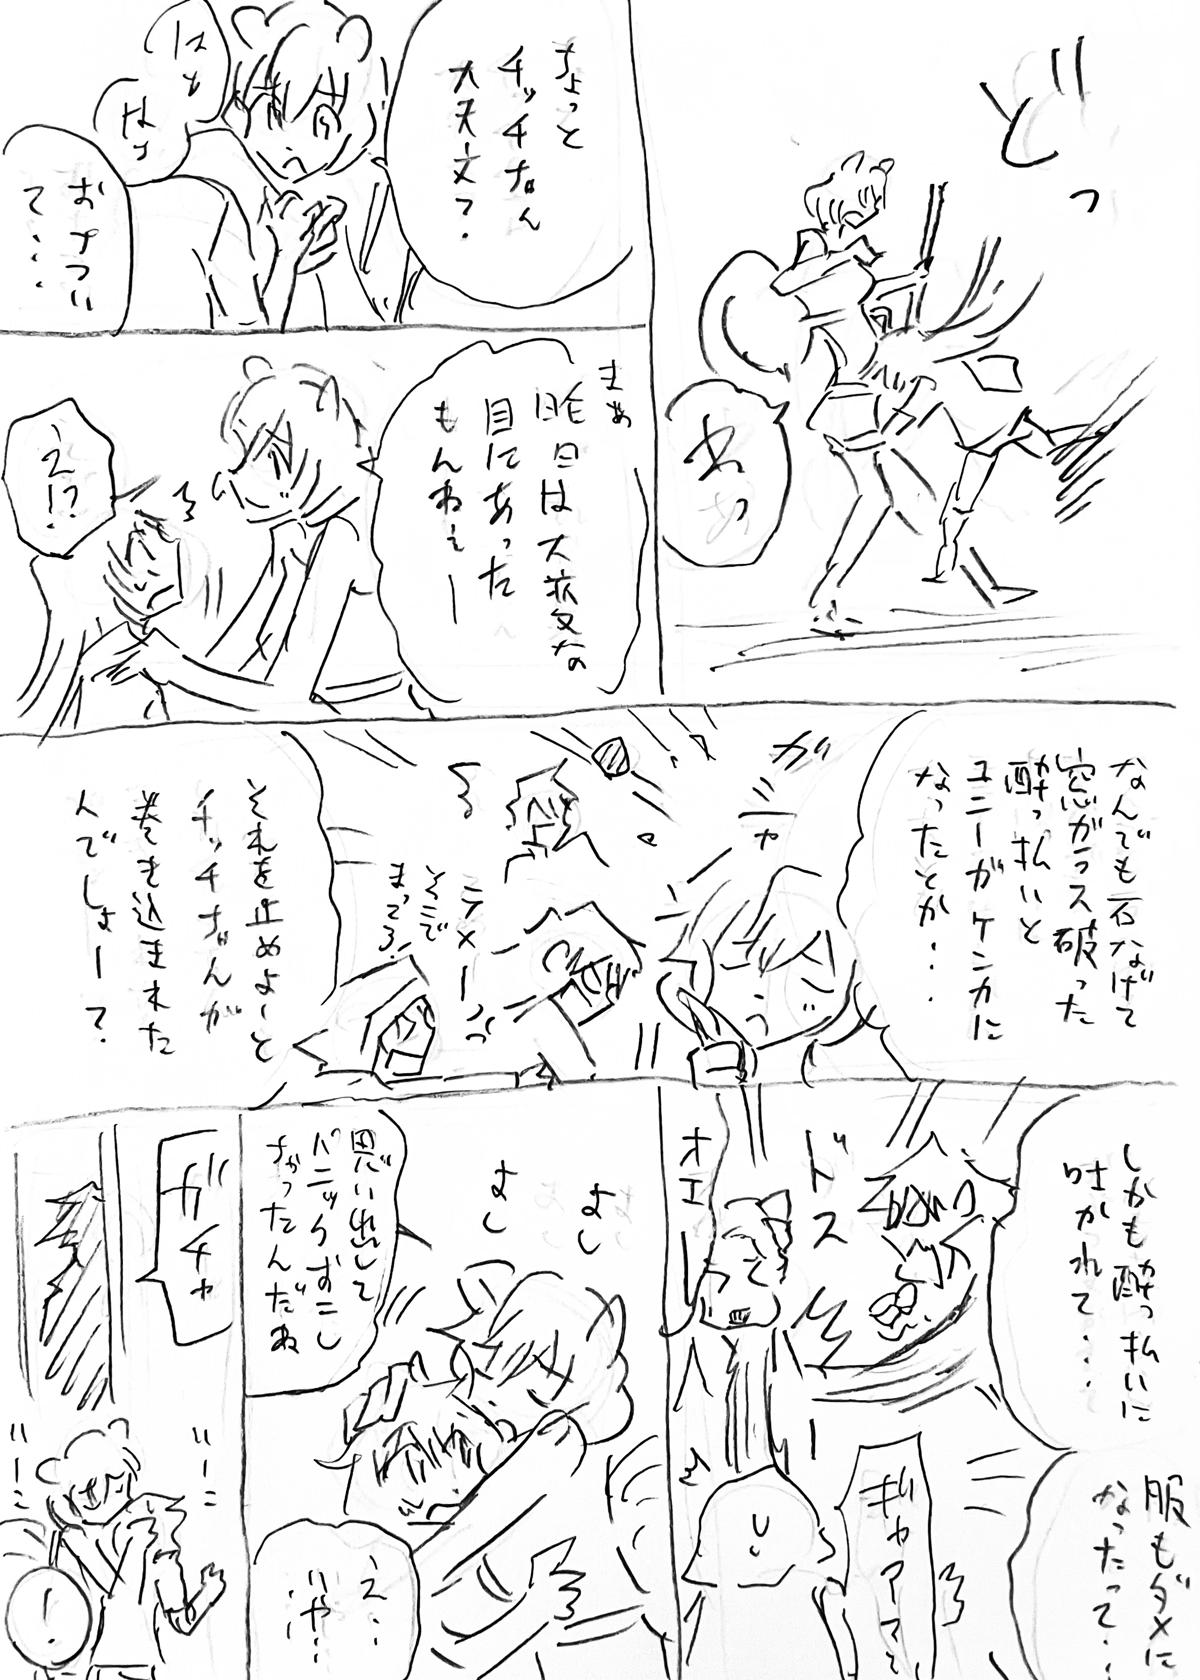 どっ
わっ
ちょっと
チッチちゃん
大丈夫?
はぁ
はぁ
おちつい
て...
まぁ
昨日は大変な
目にあった
もんねぇー
え!?
なんでも石なげて
窓ガラス破った
酔っ払いと
ユニーがケンカに
なったとか・・
ガシャ
う
テメーっ
そこで
まってろ!
それを止めよーと
チッチちゃんが
巻き込まれた
んでしょー?
しかも酔っ払いに
吐かれて・・
服もダメに
なったって・・
ドス
オエー
ギャアアア
よし
よし
思い出して
パニックおこし
ちゃったんだね
え・・
いや・・
ガチャ
!